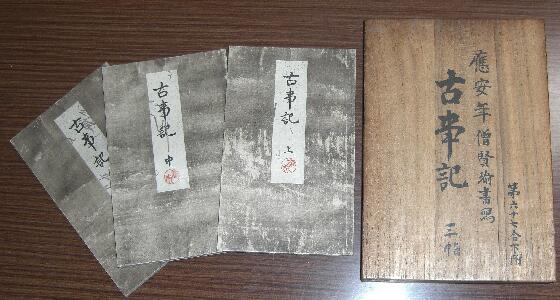 應安年僧賢瑜書寫
古事記
三帖
第六十七合下附
古事記 上
古事記 中
古事記